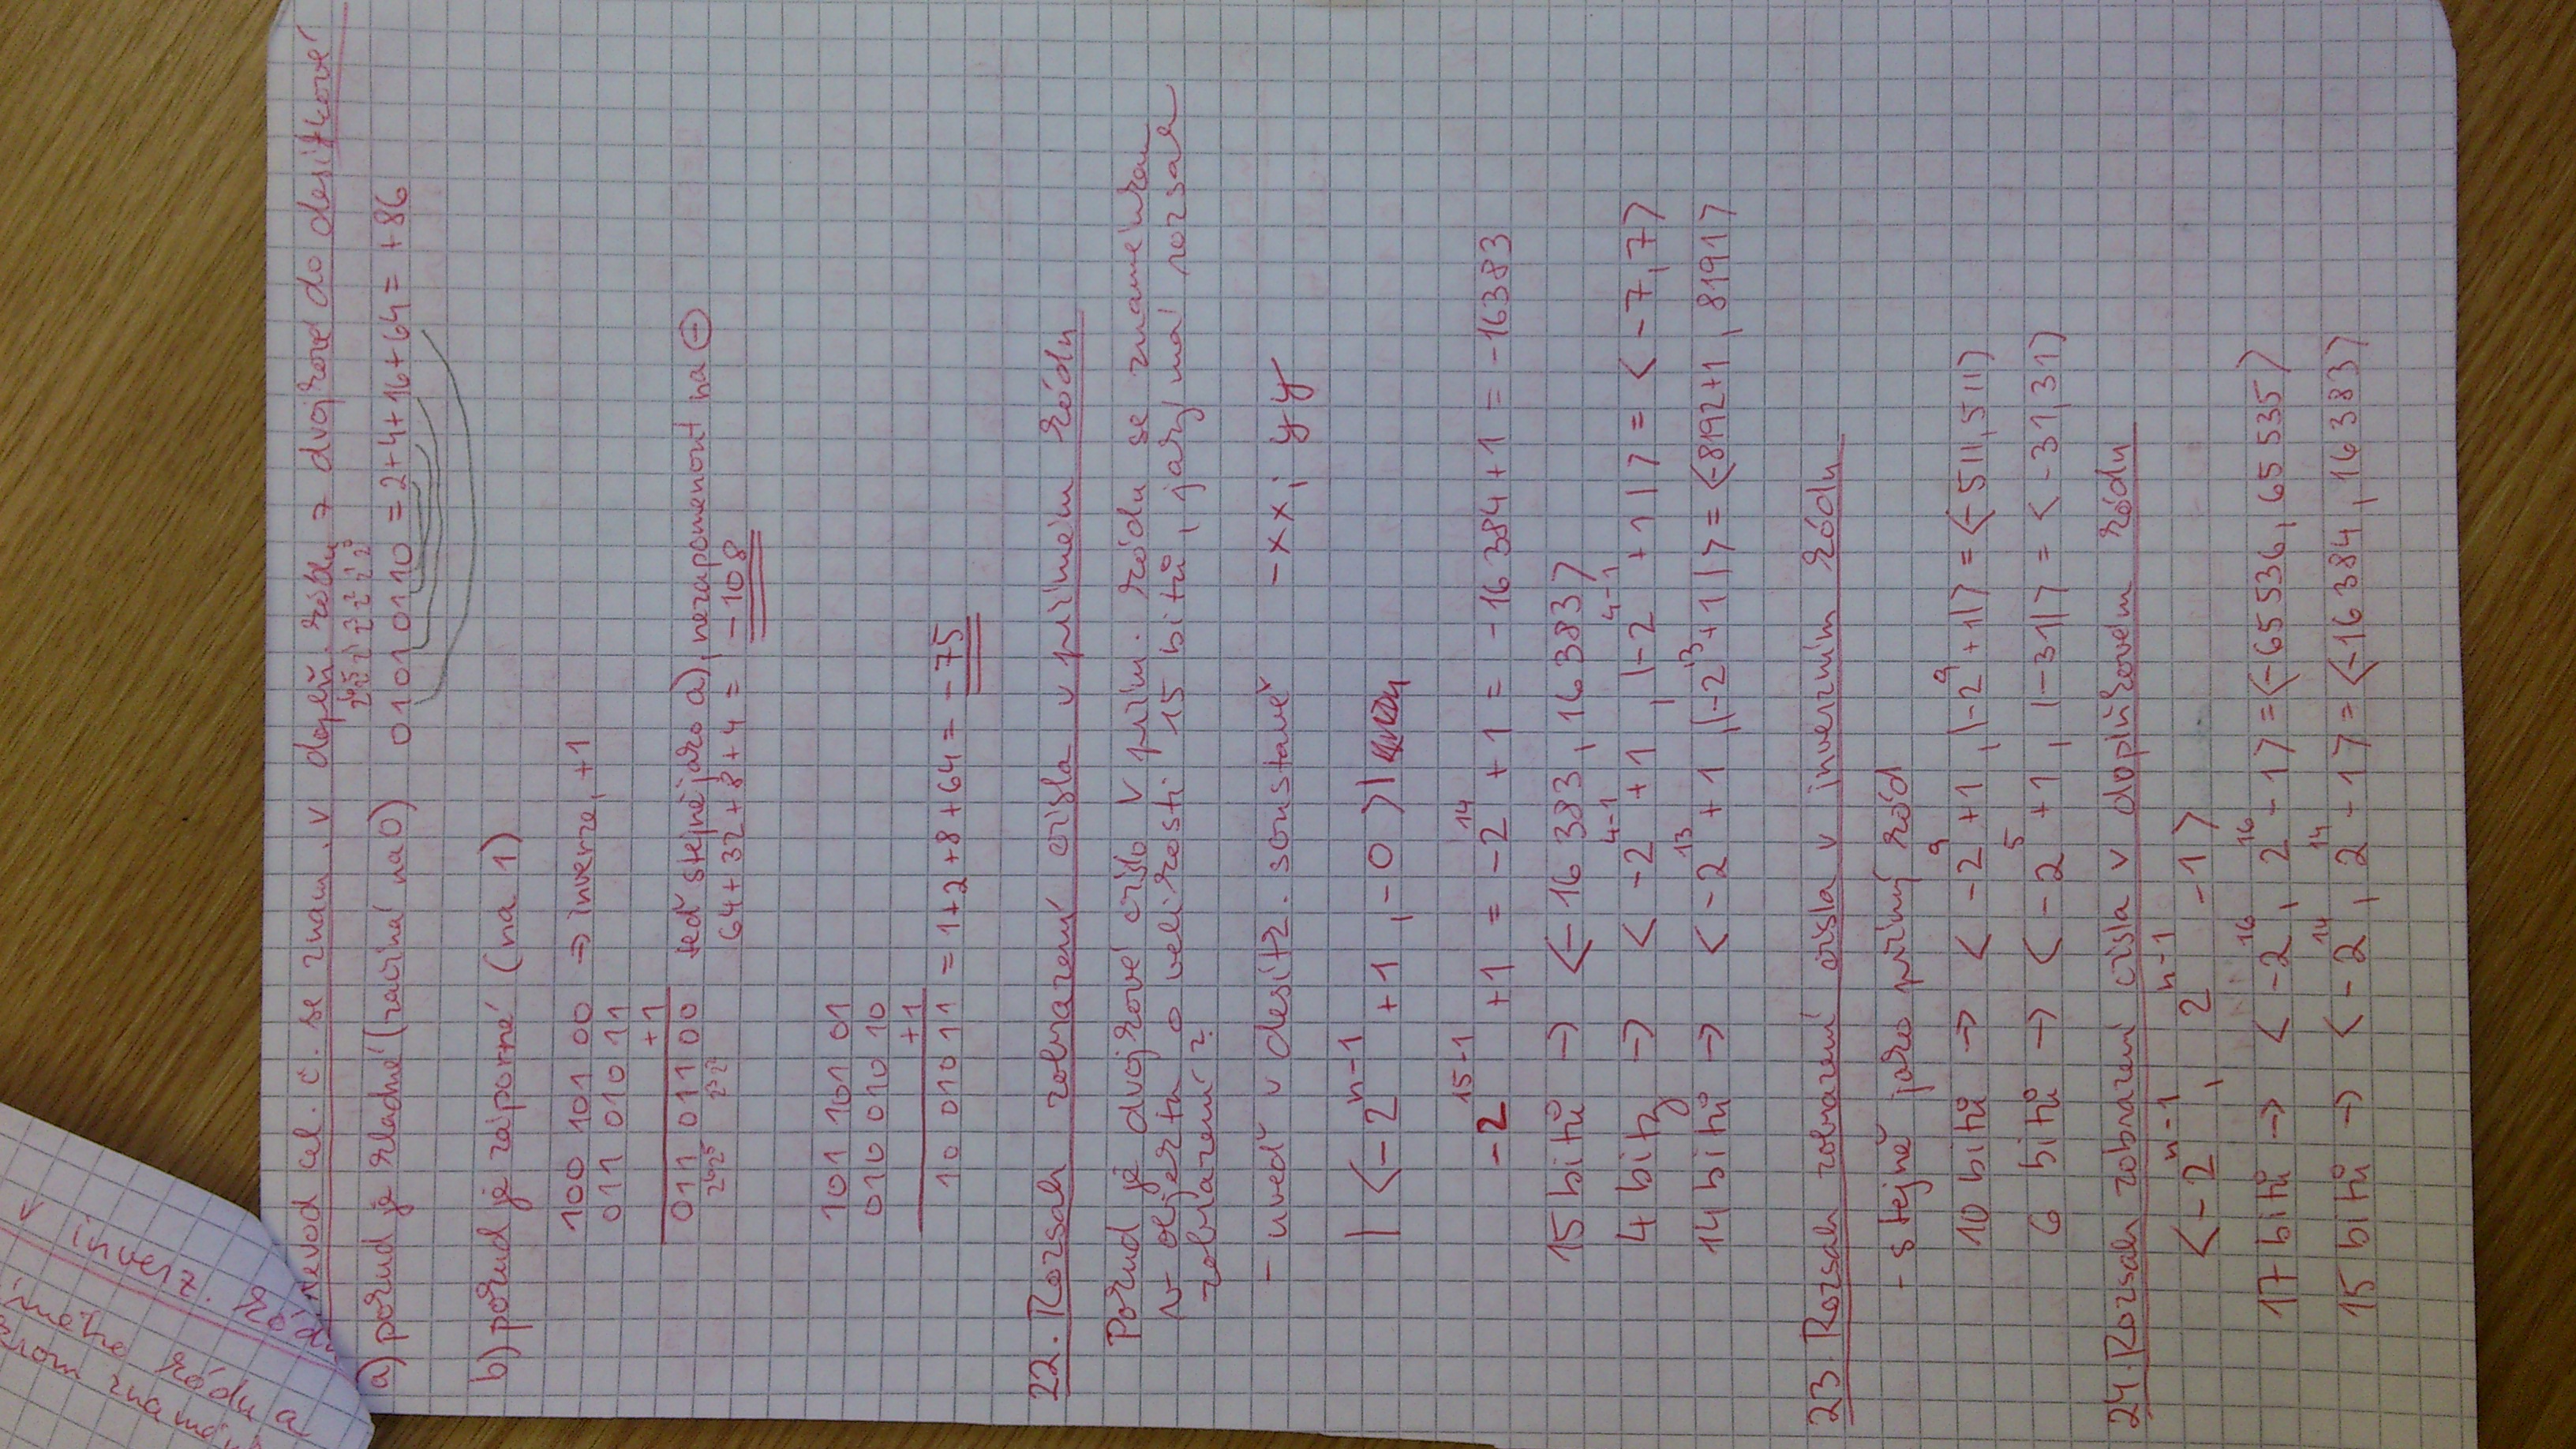 v inverz. kódu
ímého kódu a
převod cel. č. se znam. v doplň. kódu z dvojkové do desítkové
a) pokud je kladné (začíná na 0) 01010110 = 2+4+16+64 = +86
b) pokud je záporné (na 1)
100 101 00 => inverze, +1
011 010 11
+1
011 011 00 teď stejné jako a), nezapomenout na ⊖
64+32+8+4 = -108
101 101 01
010 010 10
+1
10 010 11 = 1+2+8+64 = -75
22. Rozsah zobrazení čísla v přímém kódu
Pokud je dvojkové číslo v přím. kódu se znaménkem
v objektu o velikosti 15 bitů, jaký má rozsah
zobrazení?
- uveď v desít. soustavě -xx; yy
|<-2^n-1 +1, -0>|
-2^15-1 +1 = -2^14 +1 = -16384+1 = -16383
15 bitů -> <-16 383, 16 383>
4 bity -> <-2^4-1 +1, |-2^4-1 +1|> = <-7,7>
14 bitů -> <-2^13 +1, |-2^13+1|> = <-8192+1, 8191>
23. Rozsah zobrazení čísla v inverzním kódu
- stejně jako přímý kód
10 bitů -> <-2^9+1, |-2^9+1|> = <-511,511>
6 bitů -> <-2^5+1, |-31|> = <-31,31>
24. Rozsah zobrazení čísla v doplňkovém kódu
<-2^n-1, 2^n-1 -1>
17 bitů -> <-2^16, 2^16-1> = <-65536, 65535>
15 bitů -> <-2^14, 2^14-1> = <-16384, 16383>